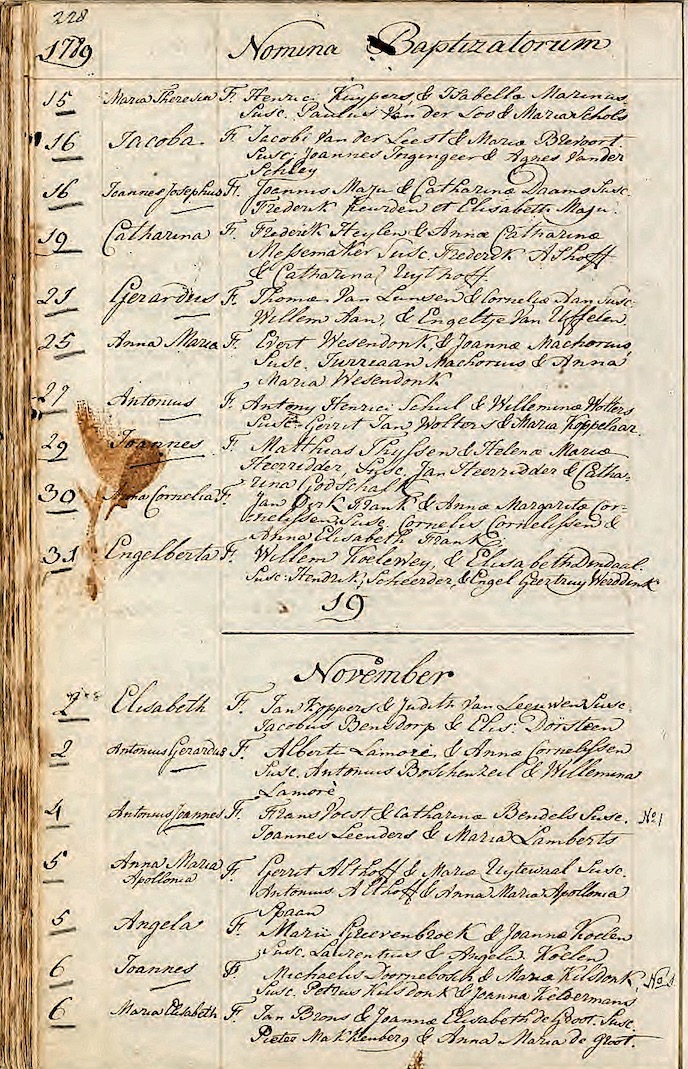 228
1789 Nomina Baptizatorum
15 Maria Theresia F. Henrici Kuypers, & Isabella Marinus.
Susc. Paulus Van der Loo & Maria Schols
16 Jacoba F. Jacobi Van der Leest & Mariæ Brevoort.
Susc. Joannes Ingingeer & Agnes Vander
Schley
16 Joannes Josephus F. Joannis Maju & Catharinæ Daams Susc.
Frederik Keurden et Elisabeth Maju.
19 Catharina F. Frederik Heylen & Annæ Catharinæ
Messemaker Susc. Frederik Althoff
& Catharina Uythoff
21 Gerardus F. Thomæ Van Lunsen & Corneliæ Aan Susc.
Willem Aan, & Engeltje Van Uffelen
25 Anna Maria F. Evert Wesendonk & Joannæ Machorius
Susc. Jurriaan Machorius & Anna
Maria Wesendonk
27 Antonius F. Antony Henrici Schul & Willeminæ Wolters
Susc. Gerrit Jan Wolters & Maria Koppelaar.
29 Joannes F. Matthias Thyssen & Helenæ Mariæ
Heerridder Susc. Jan Heerridder & Catha-
rina Godschalk
30 Anna Cornelia F. Jan Derk Frank & Annæ Margaritæ Cor-
nelissen Susc. Cornelis Cornelissen &
Anna Elisabeth Frank
31 Engelberta F. Willem Koelewey, & Elisabeth Dindaal.
Susc. Hendrik Scheerder, & Engel Geertruy Werddink
19
November
2 Elisabeth F. Jan Koppers & Judith Van Leeuwen Susc.
Jacobus Bensdorp & Elis: Dorsteen
2 Antonius Gerardus F. Alberti Lamorè, & Annæ Cornelissen
Susc. Antonius Boschenzeil & Willemina
Lamorè
4 Antonius Joannes F. Frans Voest & Catharinæ Bendels Susc. No 1
Joannes Leenders & Maria Lamberts
5 Anna Maria F. Gerrit Althoff & Mariæ Uytewaal Susc.
Apollonia Antonius Althoff & Anna Maria Apollonia
Spaan
5 Angela F. Marii Greevenbroek & Joannæ Koelen
Susc. Laurentius & Angela Koelen
6 Joannes F. Michaelis Doornebosch & Mariæ Kilsdonk, No 1
Susc. Petrus Kilsdonk & Joanna Keldermans
6 Maria Elisabeth F. Jan Brons & Joannæ Elisabeth de Groot. Susc.
Pieter Makkenberg & Anna Maria de Groot.